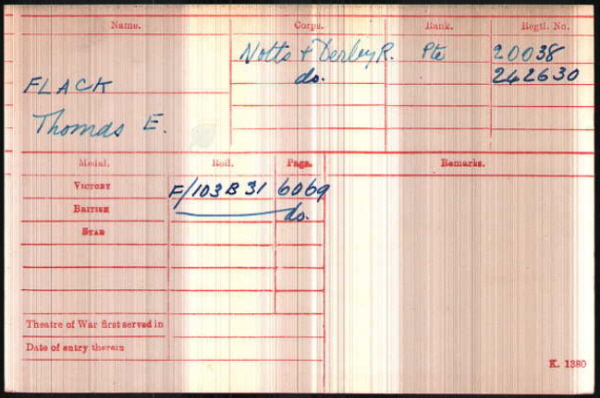 Name. Corps. Rank. Regtl. No.
Notts & Derby R. Pte 20038
FLACK do. 242630
Thomas E.
Medal. Roll. Page. Remarks.
VICTORY F/103 B 31 6069
BRITISH do.
STAR
Theatre of War first served in
Date of entry therein
K. 1380